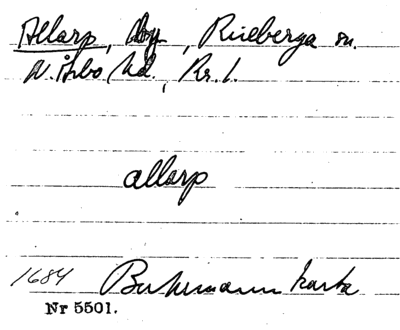 Allarp, by, Riseberga sn.
N. Åsbo hd., Kr. l.
allarp
1684 Buhrmanns karta
Nr 5501.